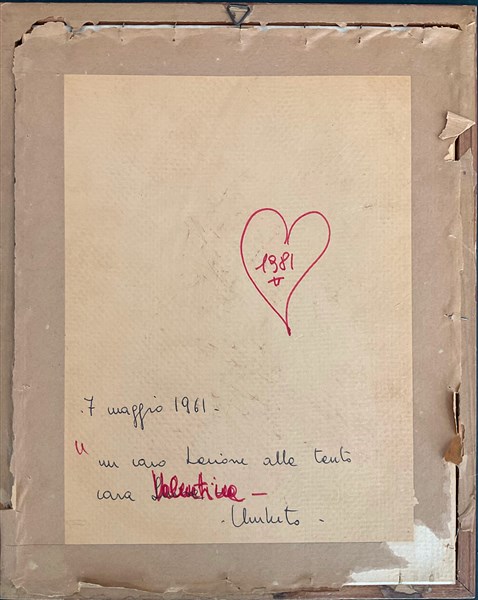 1981
v
. 7 maggio 1961 -
" un caro
alla tanto
cara Valentina —
. Umberto .